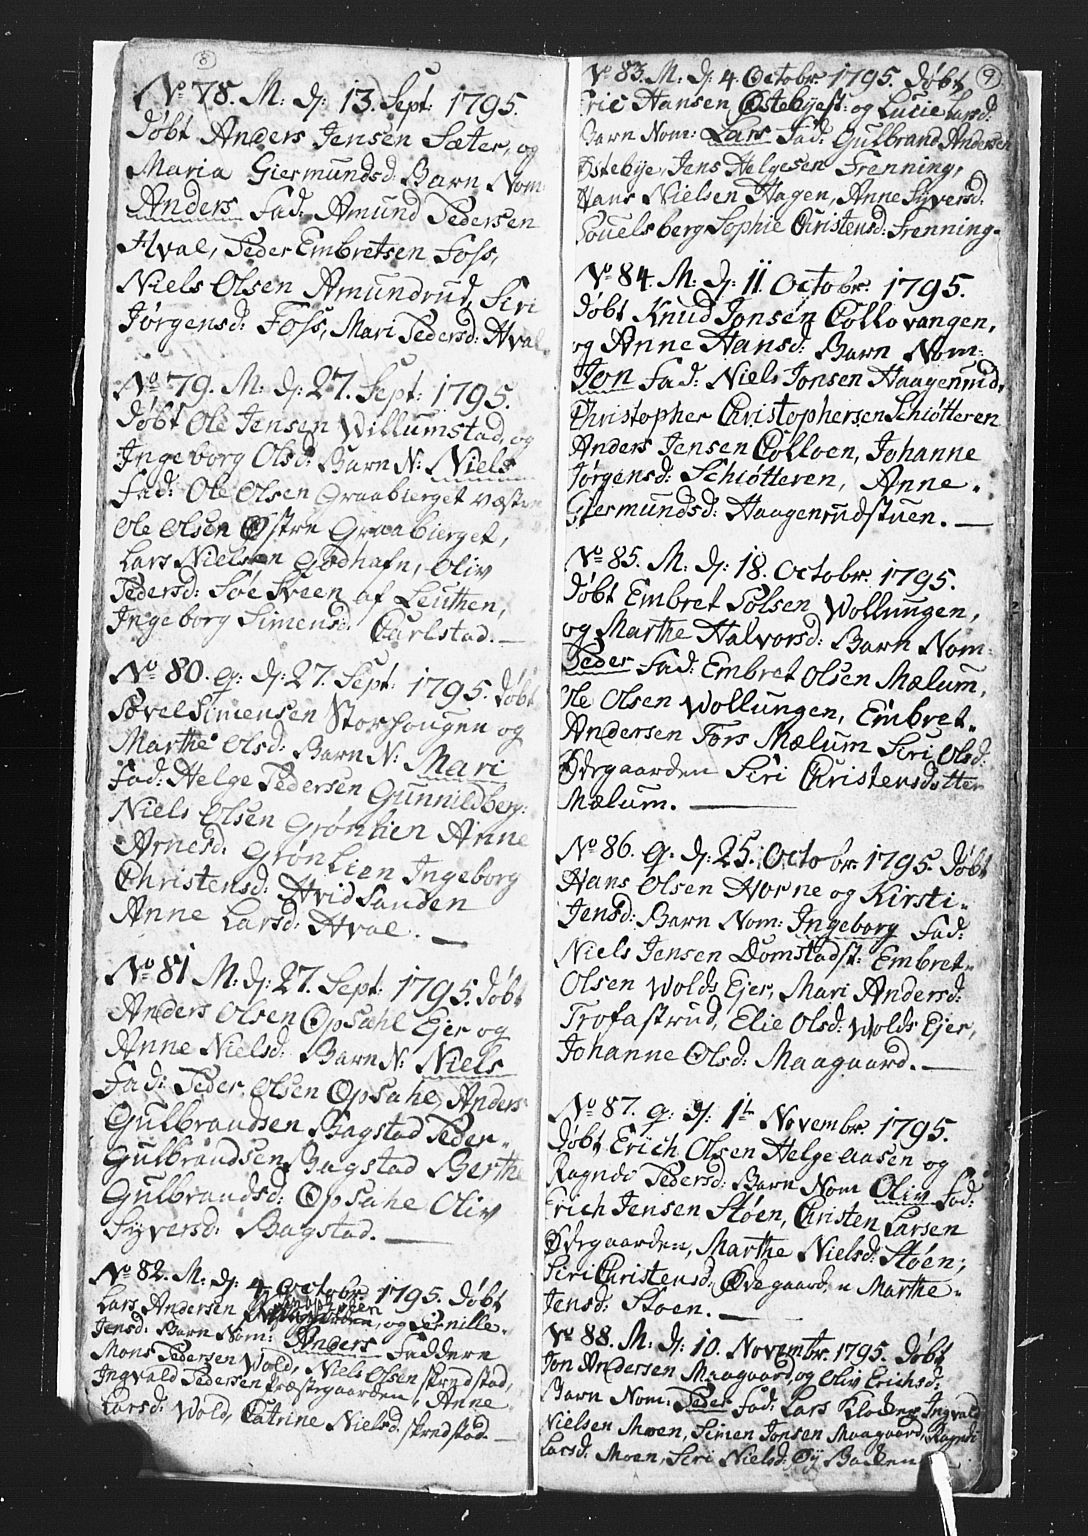 8
No 78. M: d: 13. Sept: 1795.
Døbt Anders Jensen Sæter, og
Maria Giermundsd: Barn Nom:
Anders Fad: Amund Pedersen
Hval, Peder Embretsen Foss,
Niels Olsen Amundrud, Siri
Jørgensd: Foss, Mari Pedersd: Hval.
No 79. M: d: 27. Sept: 1795.
Døbt Ole Jensen Willumstad, og
Ingeborg Olsd: Barn N: Niels
Fad: Ole Olsen Graabierget Væstre
Ole Olsen Østre Graabierget,
Lars Nielsen Godhafn, Oliv
Pedersd: Søe Sveen af Leuthen,
Ingeborg Simensd: Carlstad.
No 80. q: d: 27. Sept: 1795. Døbt
Povel Simensen Storhougen og
Marthe Olsd: Barn N: Mari
Fad: Helge Pedersen Gunnildberg:
Niels Olsen Grønlien Anne
Arnesd: Grønlien Ingeborg
Christensd: Hvidsanden
Anne Larsd: Hval.
No 81 M: d: 27. Sept: 1795. Døbt
Anders Olsen Opsahl Ejer og
Anne Nielsd: Barn N: Niels
Fad: Peder Olsen Opsahl, Anders
Gulbrandsen Bagstad Peder
Gulbrandsen Bagstad Berthe
Gulbrandsd: Opsahl Oliv
Syversd: Bagstad.
No 82. M: d: 4 Octobr 1795. Døbt
Lars Andersen og Pernille
Jensd: Barn Nom: Anders Faddere
Mons Pedersen Wold, Niels Olsen Skredstad,
Ingvald Pedersen Præstegaarden, Anne
Larsd: Wold, Catrine Nielsd: Skredstad.
9
No 83. M: d: 4 Octobr 1795. Døbt
Eric Hansen Østebyest: og Lucie Larsd:
Barn Nom: Lars Fad: Gulbrand Andersen
Østebye, Jens Helgesen Frenning,
Hans Nielsen Hagen, Anne Syversd.
Pouelsberg Sophie Christensd: Frenning.
No 84. M: d: 11 Octobr 1795.
Døbt Knud Jonsen Collovangen,
og Anne Hansd: Barn Nom:
Jon Fad: Niels Jonsen Haagenrud,
Christopher Christophersen Schiøtteren
Anders Jensen Colloen, Johanne
Jørgensd: Schiøtteren, Anne
Giermundsd: Haagenrudstuen.
No 85. M: d: 18. Octobr 1795.
Døbt Embret Polsen Wollungen,
og Marthe Halvorsd: Barn Nom:
Peder Fad: Embret Olsen Mælum,
Ole Olsen Wollungen, Embret
Andersen Fors Mælum Siri Olsd:
Ødegaarden Siri Christensdotter
Mælum.
No 86. q. d: 25. Octobr 1795. Døbt
Hans Olsen Horne og Kirsti
Jensd: Barn Nom: Ingeborg Fad:
Niels Jensen Domstadst: Embret
Olsen Wolds Ejer, Mari Andersd:
Trofastrud, Elie Olsd: Wolds Ejer,
Johanne Olsd: Maagaard.
No 87. q: d: 1te Novembr 1795.
Døbt Erich Olsen Helgeaasen og
Ragndi Pedersd: Barn Nom Oliv Fad:
Erich Jensen Støen, Christen Larsen
Ødegaarden, Marthe Nielsd: Støen,
Siri Christensd: Ødegaarden Marthe
Jensd: Støen.
No 88. M: d: 10. Novembr 1795. Døbt
Jon Andersen Maagaard, og Oliv Erichsd:
Barn Nom: Peder Fad: Lars Klocker, Ingvald
Nielsen Moen, Simen Jonsen Maagaard, Ragndi
Larsd: Moen, Siri Nielsd: Øy Backen